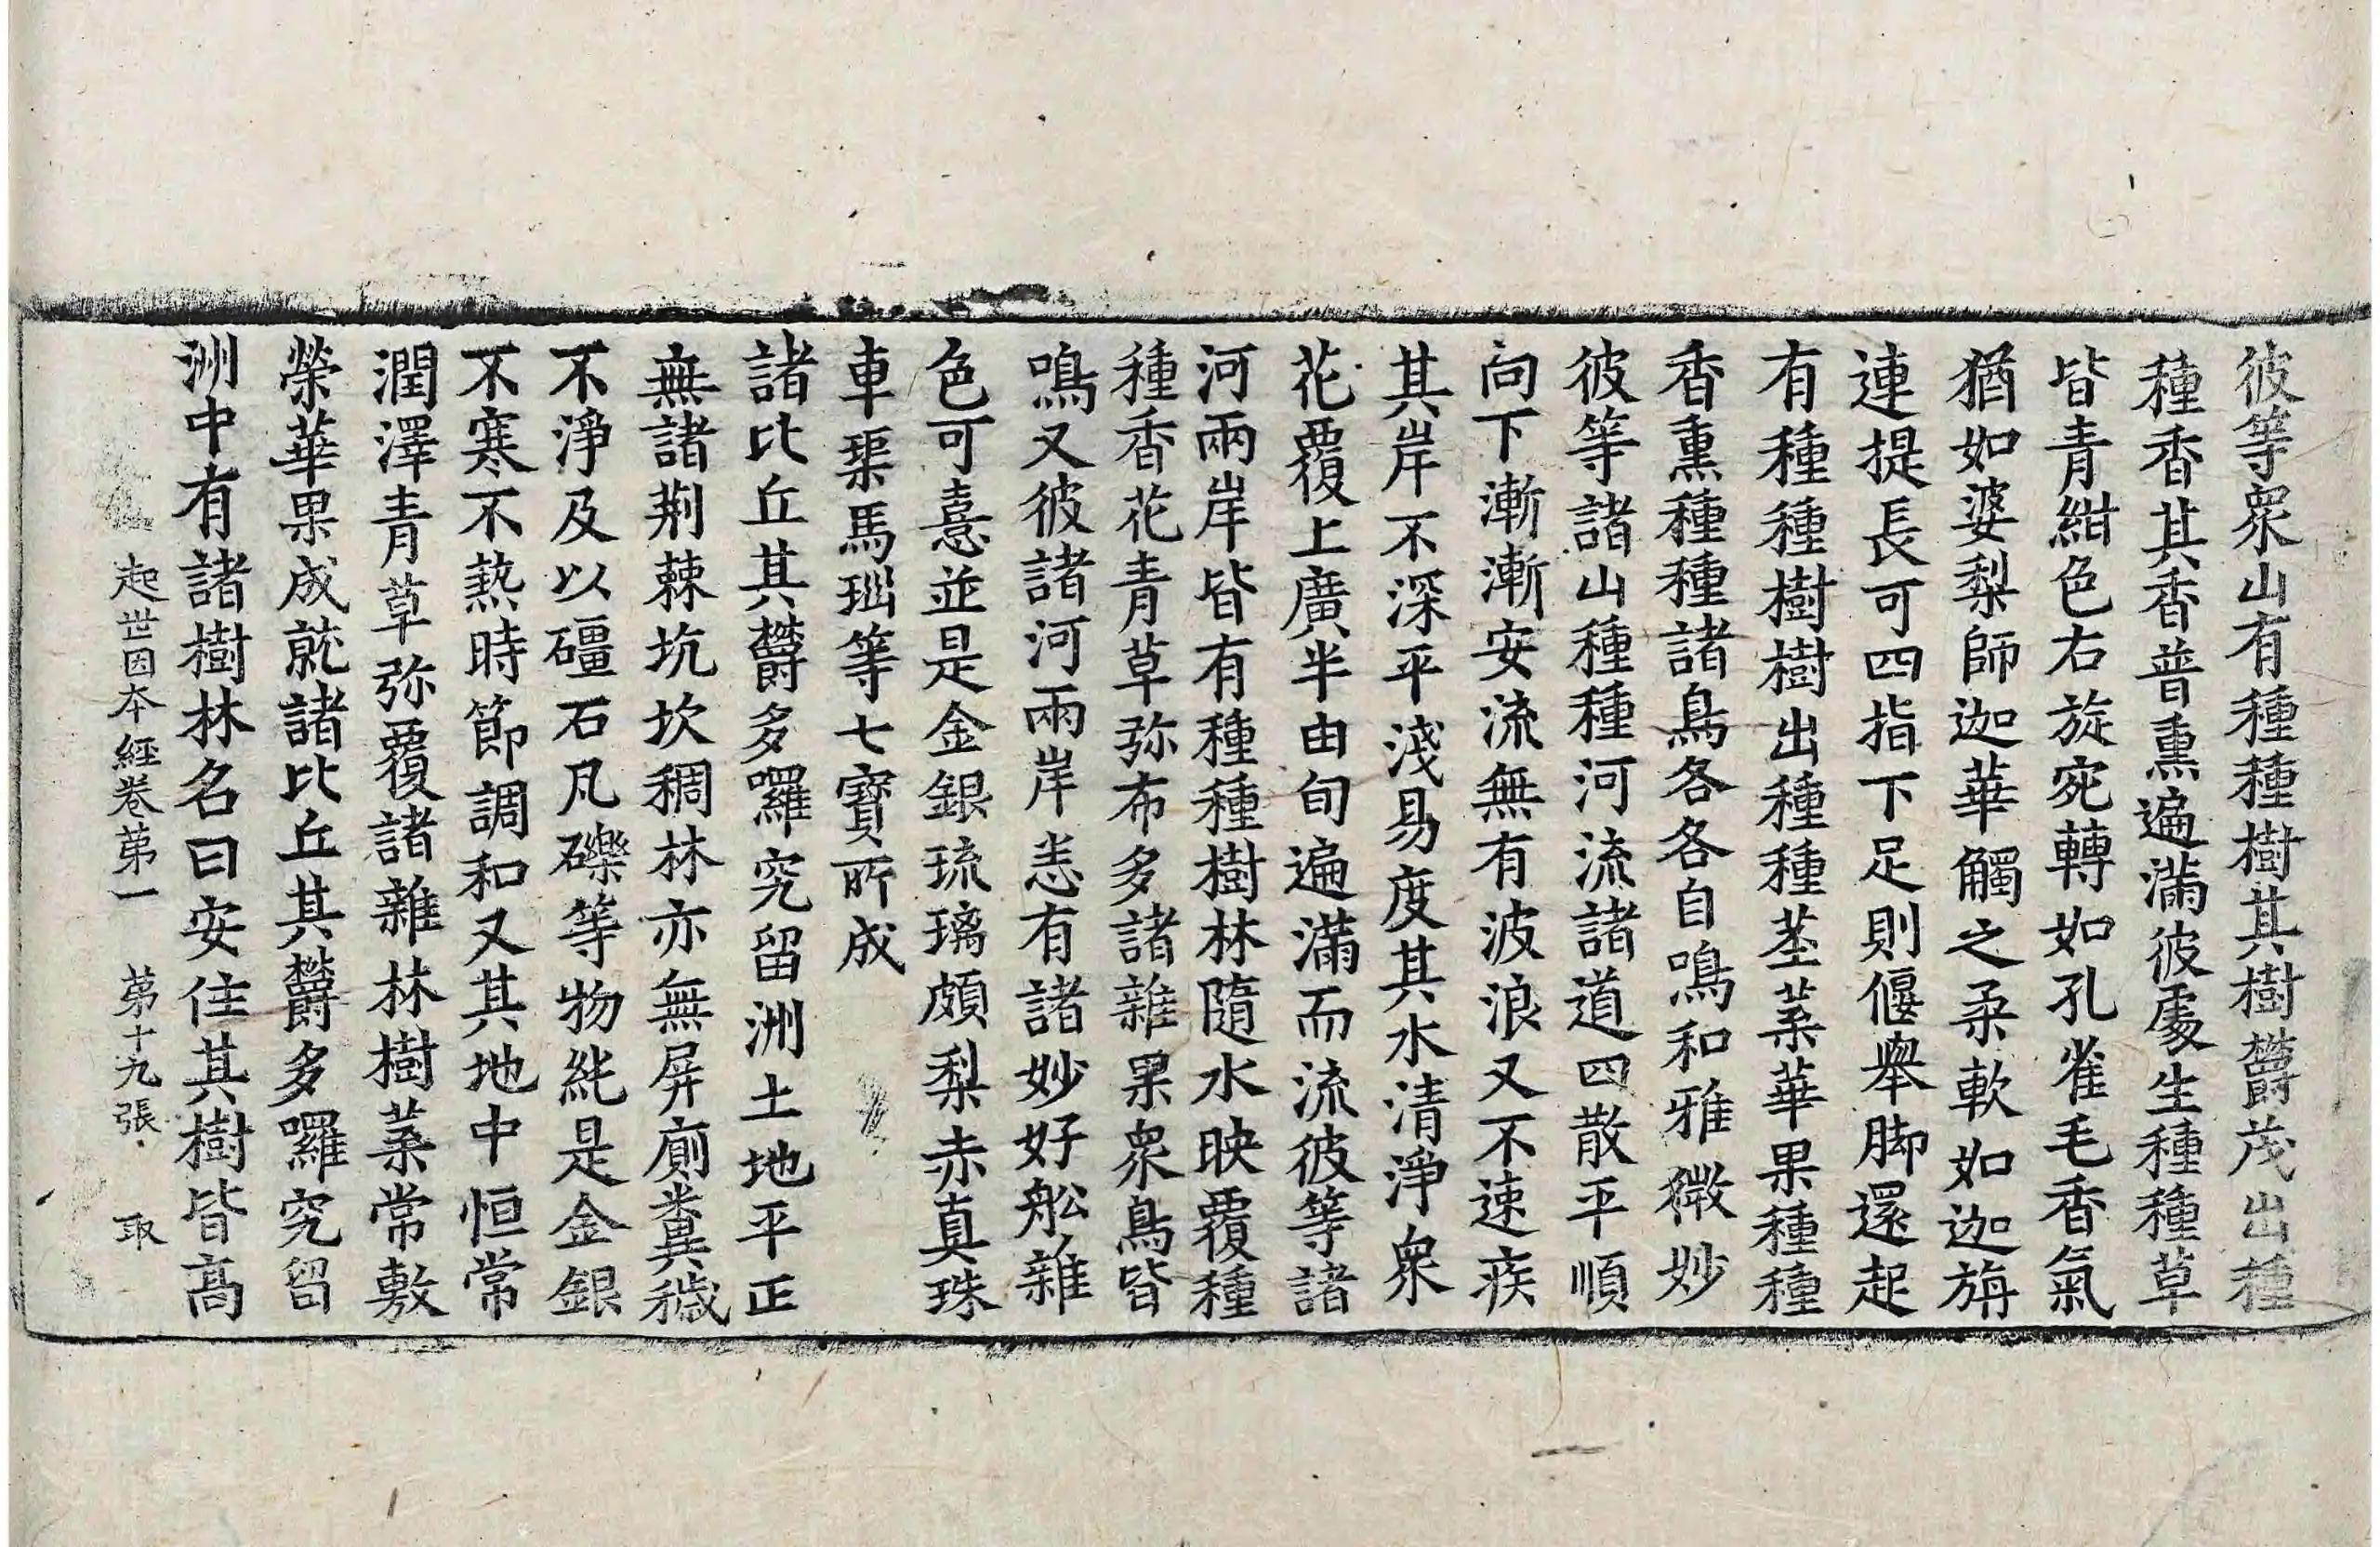 彼等衆山有種種樹其樹欝茂出種
種香其香普熏遍滿彼處生種種草
皆青紺色右旋宛轉如孔雀毛香氣
猶如婆梨師迦華觸之柔軟如迦旃
連提長可四指下足則偃舉脚還起
有種種樹樹出種種莖葉華果種種
香熏種種諸鳥各各自鳴和雅微妙
彼等諸山種種河流諸道四散平順
向下漸漸安流無有波浪又不速疾
其岸不深平淺易度其水清淨衆
花覆上廣半由旬遍滿而流彼等諸
河兩岸皆有種種樹林隨水映覆種
種香花青草弥布多諸雜果衆鳥皆
鳴又彼諸河兩岸悉有諸妙好舩雜
色可憙並是金銀琉璃頗梨赤真珠
車𤦲馬瑙等七寶所成
諸比丘其欝多囉究留洲土地平正
無諸荆棘坑坎稠林亦無屏廁糞穢
不淨及以礓石凡礫等物純是金銀
不寒不熱時節調和又其地中恒常
潤澤青草弥覆諸雜林樹葉常敷
榮華果成就諸比丘其欝多囉究留
洲中有諸樹林名曰安住其樹皆高
起世因本經卷苐一 苐十九張 取